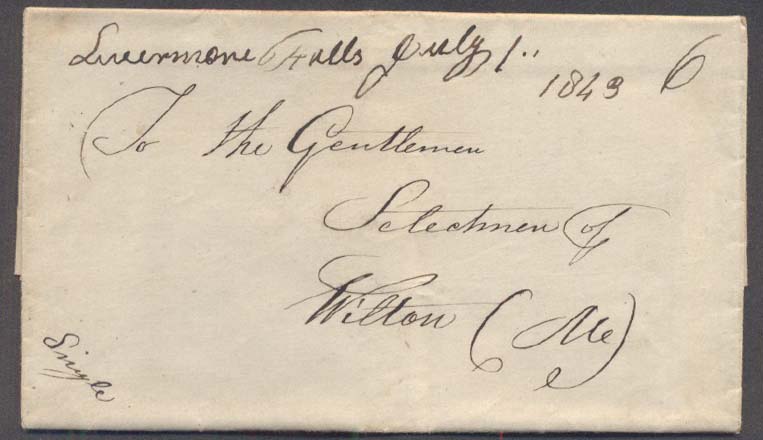 Livermore Falls July 1..
1843 6
To the Gentlemen
Selectmen of
Wilton (Me)
Single